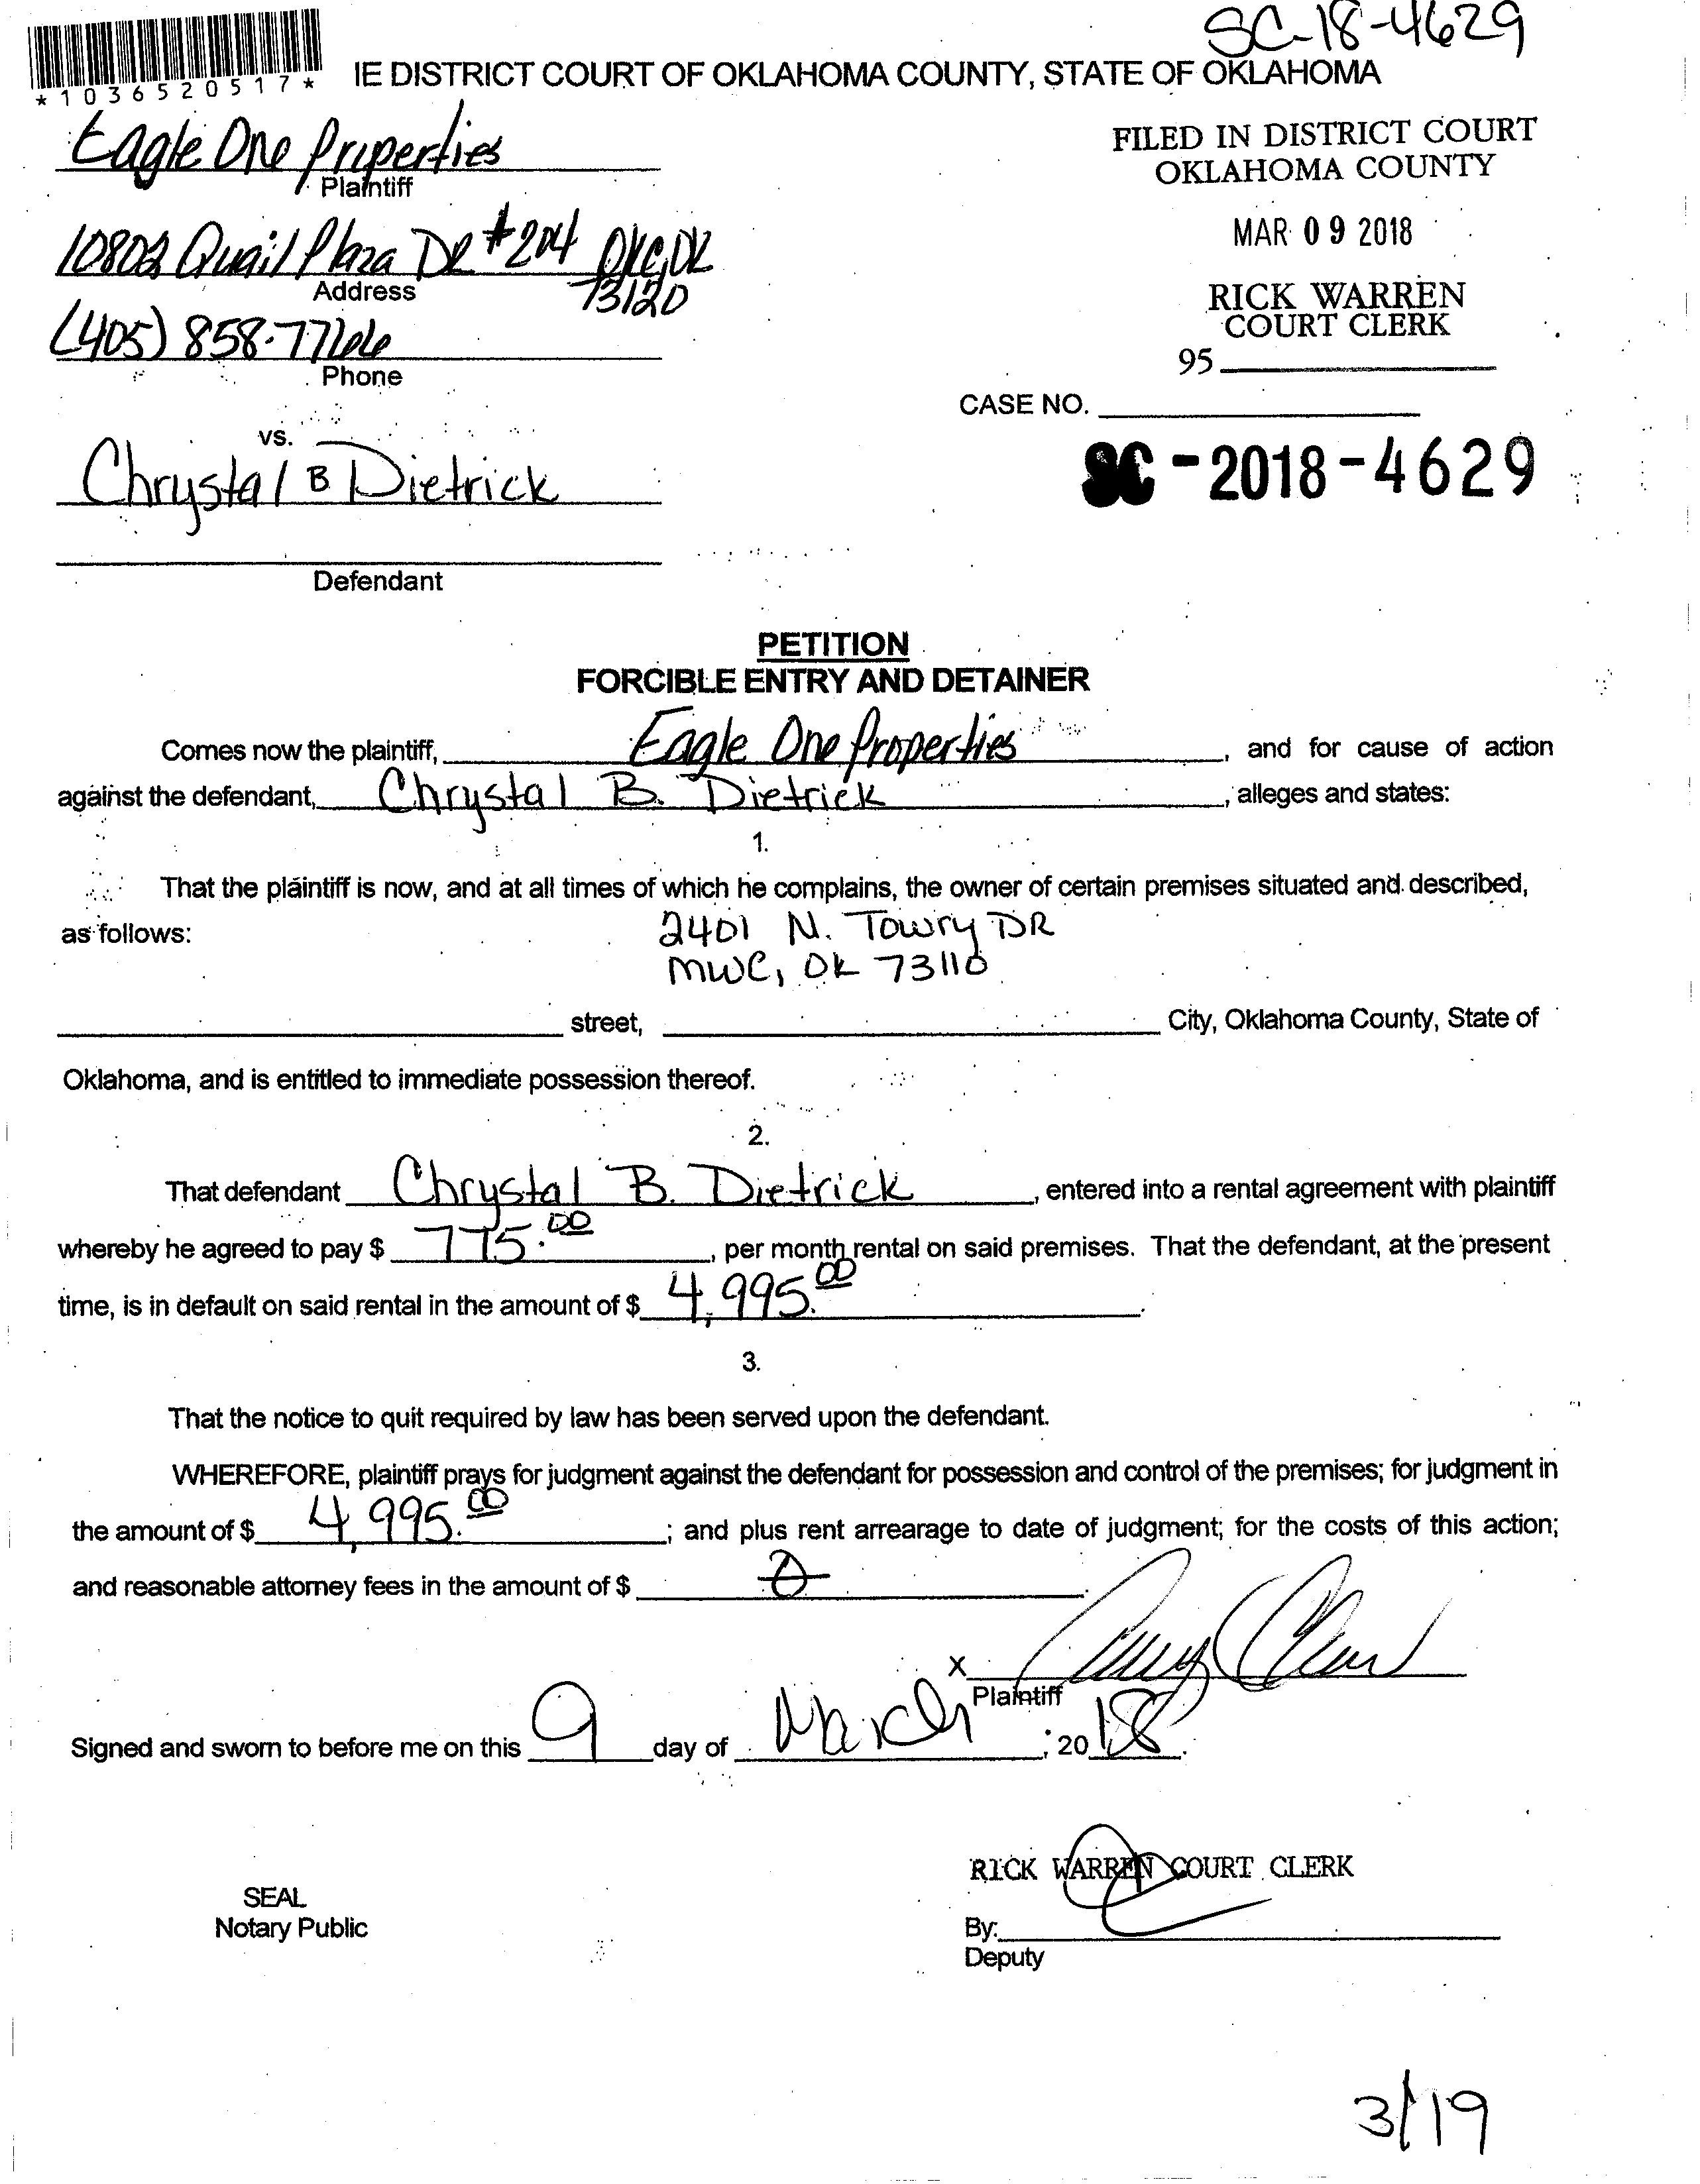 SC-18-4629
*1036520517*
IE DISTRICT COURT OF OKLAHOMA COUNTY, STATE OF OKLAHOMA
Eagle One Properties
Plaintiff
FILED IN DISTRICT COURT
OKLAHOMA COUNTY
MAR 09 2018
RICK WARREN
COURT CLERK
95
10802 Quail Plaza DR #204 OKC, OK
73120
Address
(405) 858-7766
Phone
CASE NO.
SC-2018-4629
vs.
Chrystal B Dietrick
Defendant
PETITION
FORCIBLE ENTRY AND DETAINER
Comes now the plaintiff, Eagle One Properties, and for cause of action
against the defendant, Chrystal B. Dietrick, alleges and states:
1.
That the plaintiff is now, and at all times of which he complains, the owner of certain premises situated and described,
as follows: 2401 N. Towry DR
MWC, OK 73110
street, City, Oklahoma County, State of
Oklahoma, and is entitled to immediate possession thereof.
2.
That defendant Chrystal B. Dietrick, entered into a rental agreement with plaintiff
whereby he agreed to pay $ 775.00, per month rental on said premises. That the defendant, at the present
time, is in default on said rental in the amount of $ 4,995.00.
3.
That the notice to quit required by law has been served upon the defendant.
WHEREFORE, plaintiff prays for judgment against the defendant for possession and control of the premises; for judgment in
the amount of $ 4,995.00; and plus rent arrearage to date of judgment; for the costs of this action;
and reasonable attorney fees in the amount of $ 0.
X
Plaintiff
Signed and sworn to before me on this 9 day of March, 2018.
RICK WARREN COURT CLERK
SEAL
Notary Public
By:
Deputy
3/19